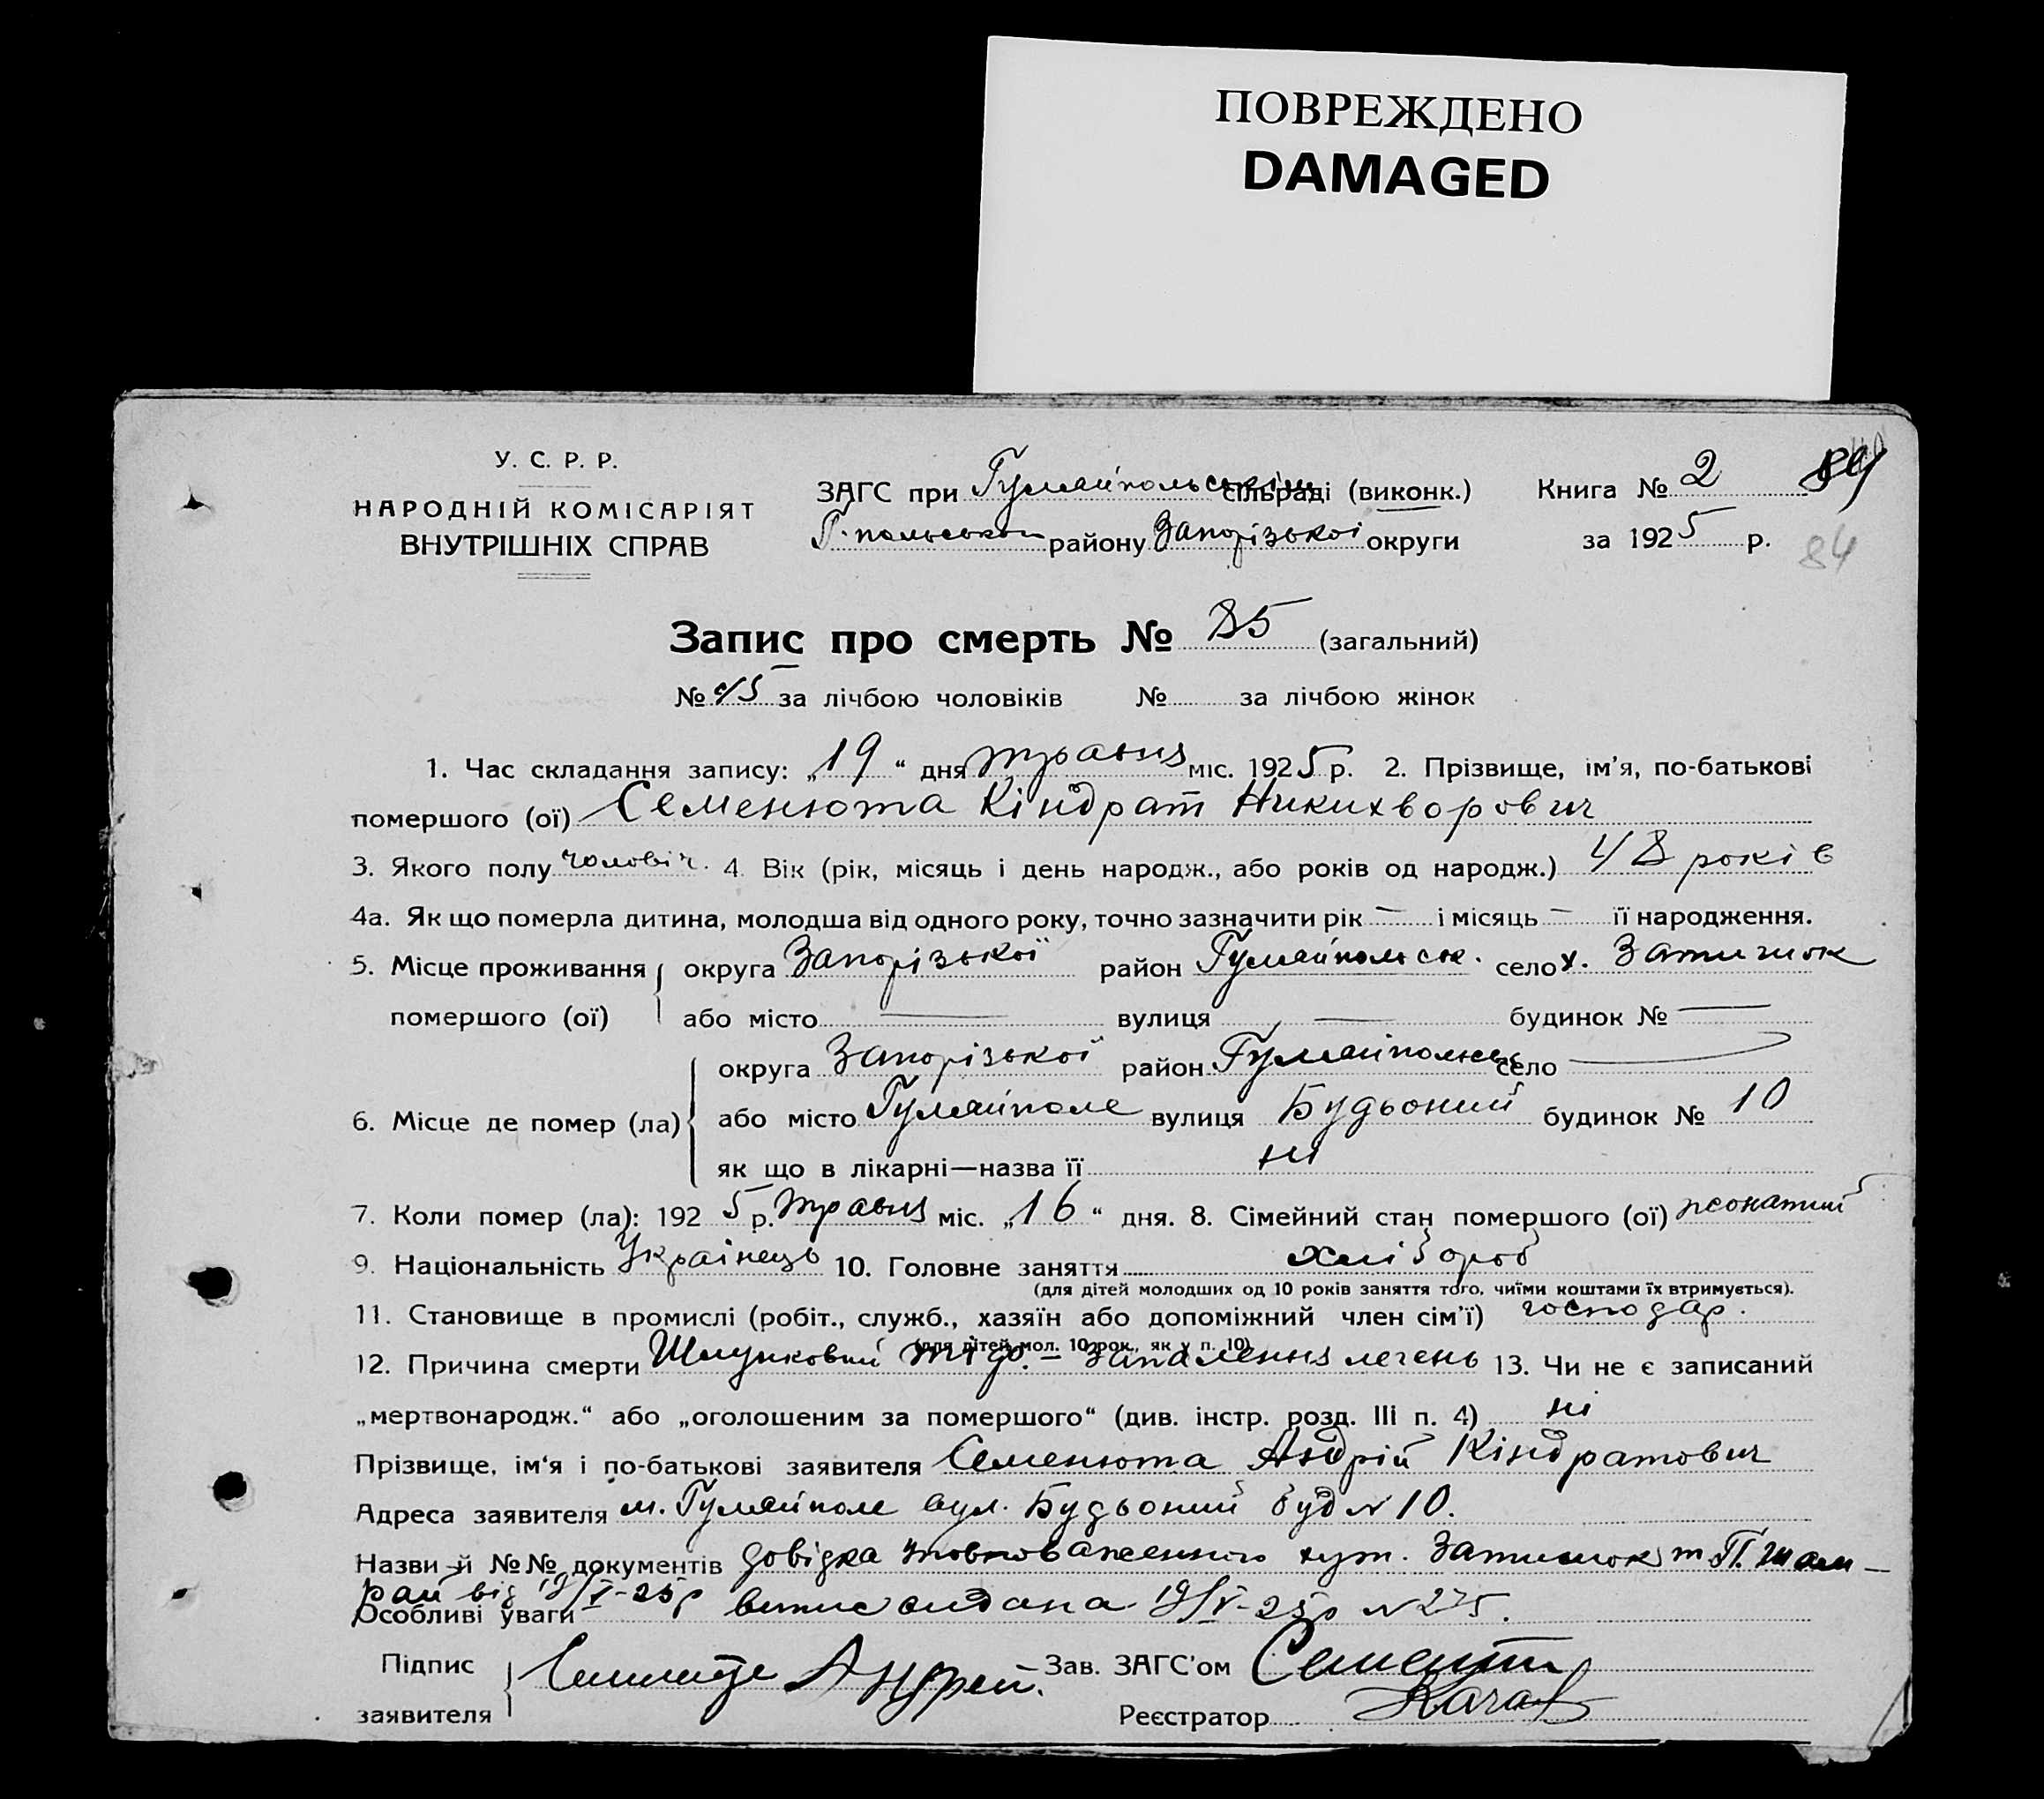 ПОВРЕЖДЕНО
DAMAGED
У. С. Р. Р.
НАРОДНІЙ КОМІСАРІЯТ
ВНУТРІШНІХ СПРАВ
ЗАГС при Гуляйпольськім сільраді (виконк.) Книга № 2
Г.польського району Запорізької округи за 1925 р.
84
Запис про смерть № 85 (загальний)
№ 45 за лічбою чоловіків № за лічбою жінок
1. Час складання запису: „19“ дня травня міс. 1925 р. 2. Прізвище, ім’я, по-батькові
помершого (ої) Семенюта Кіндрат Никихворович
3. Якого полу чоловіч. 4. Вік (рік, місяць і день народж., або років од народж.) 48 років
4а. Як що померла дитина, молодша від одного року, точно зазначити рік — і місяць — її народження.
5. Місце проживання округа Запорізької район Гуляйпольськ. село х. Затишок
помершого (ої) або місто — вулиця — будинок № —
округа Запорізької район Гуляйпольськ село —
6. Місце де помер (ла) або місто Гуляйполе вулиця Будьоний будинок № 10
як що в лікарні—назва її ні
7. Коли помер (ла): 1925 р. травня міс. „16“ дня. 8. Сімейний стан помершого (ої) жонатий
9. Національність Українець 10. Головне заняття хлібороб
(для дітей молодших од 10 років заняття того, чиїми коштами їх втримується).
11. Становище в промислі (робіт., служб., хазяїн або допоміжний член сім’ї) господар.
(для дітей мол. 10 рок., як у п. 10)
12. Причина смерти Шлунковий тіф. – Запалення легень 13. Чи не є записаний
„мертвонародж.“ або „оголошеним за помершого“ (див. інстр. розд. III п. 4) ні
Прізвище, ім‘я і по-батькові заявителя Семенюта Андрій Кіндратович
Адреса заявителя м. Гуляйполе вул. Будьоний буд № 10.
Назви й №№ документів довідка уповноваженного хут. Затишок т. П. Шам-
рай від 19/V-25р
Особливі уваги виписа видана 19/V-25р № 275.
Підпис
заявителя Андрей.
Зав. ЗАГС’ом
Реєстратор